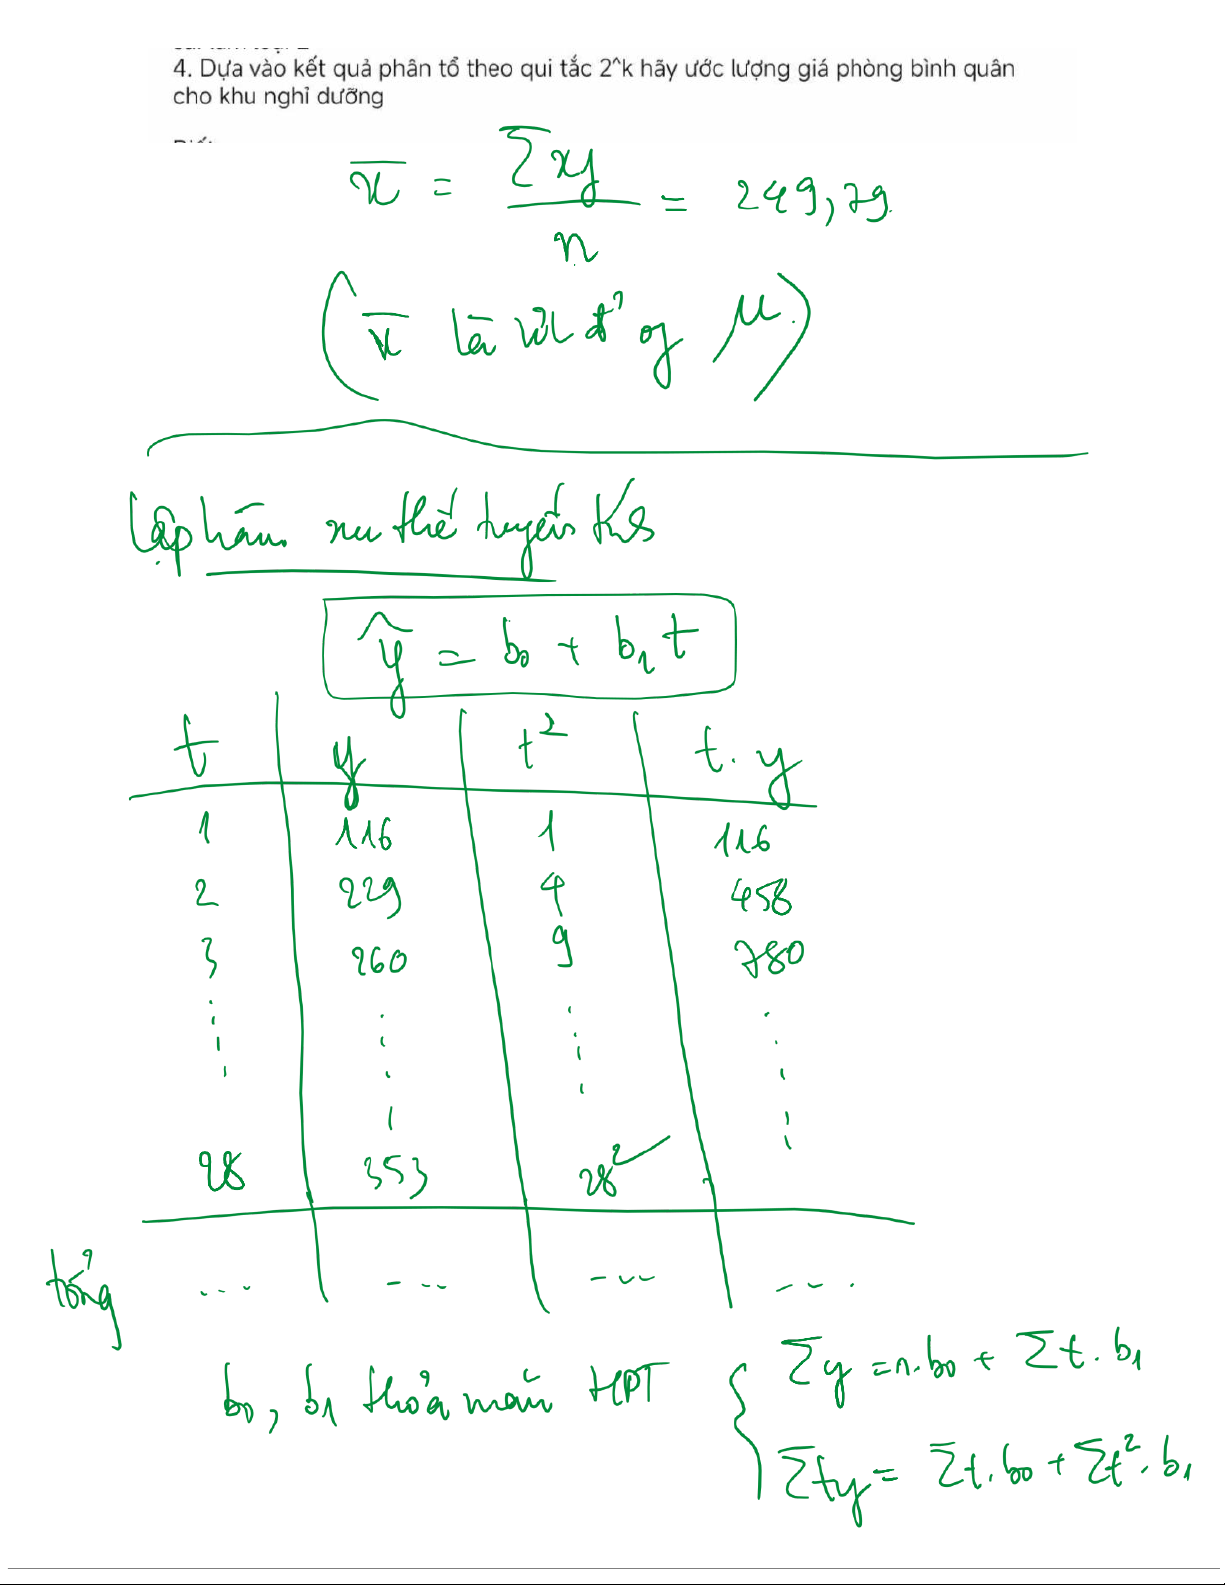 4. Dựa vào kết quả phân tổ theo qui tắc 2^k hãy ước lượng giá phòng bình quân
cho khu nghỉ dưỡng
x̄ = Σxf / n = 249,79
(x̄ là ước đ' of μ.)
Lập hàm xu thế tuyến
ŷ = b₀ + b₁t
t y t² t.y
1 116 1 116
2 229 4 458
3 260 9 780
28 353 28²
tổng ... --- --- ---.
b₀, b₁ thỏa mãn HPT
Σy = n.b₀ + Σt.b₁
Σty = Σt.b₀ + Σt².b₁